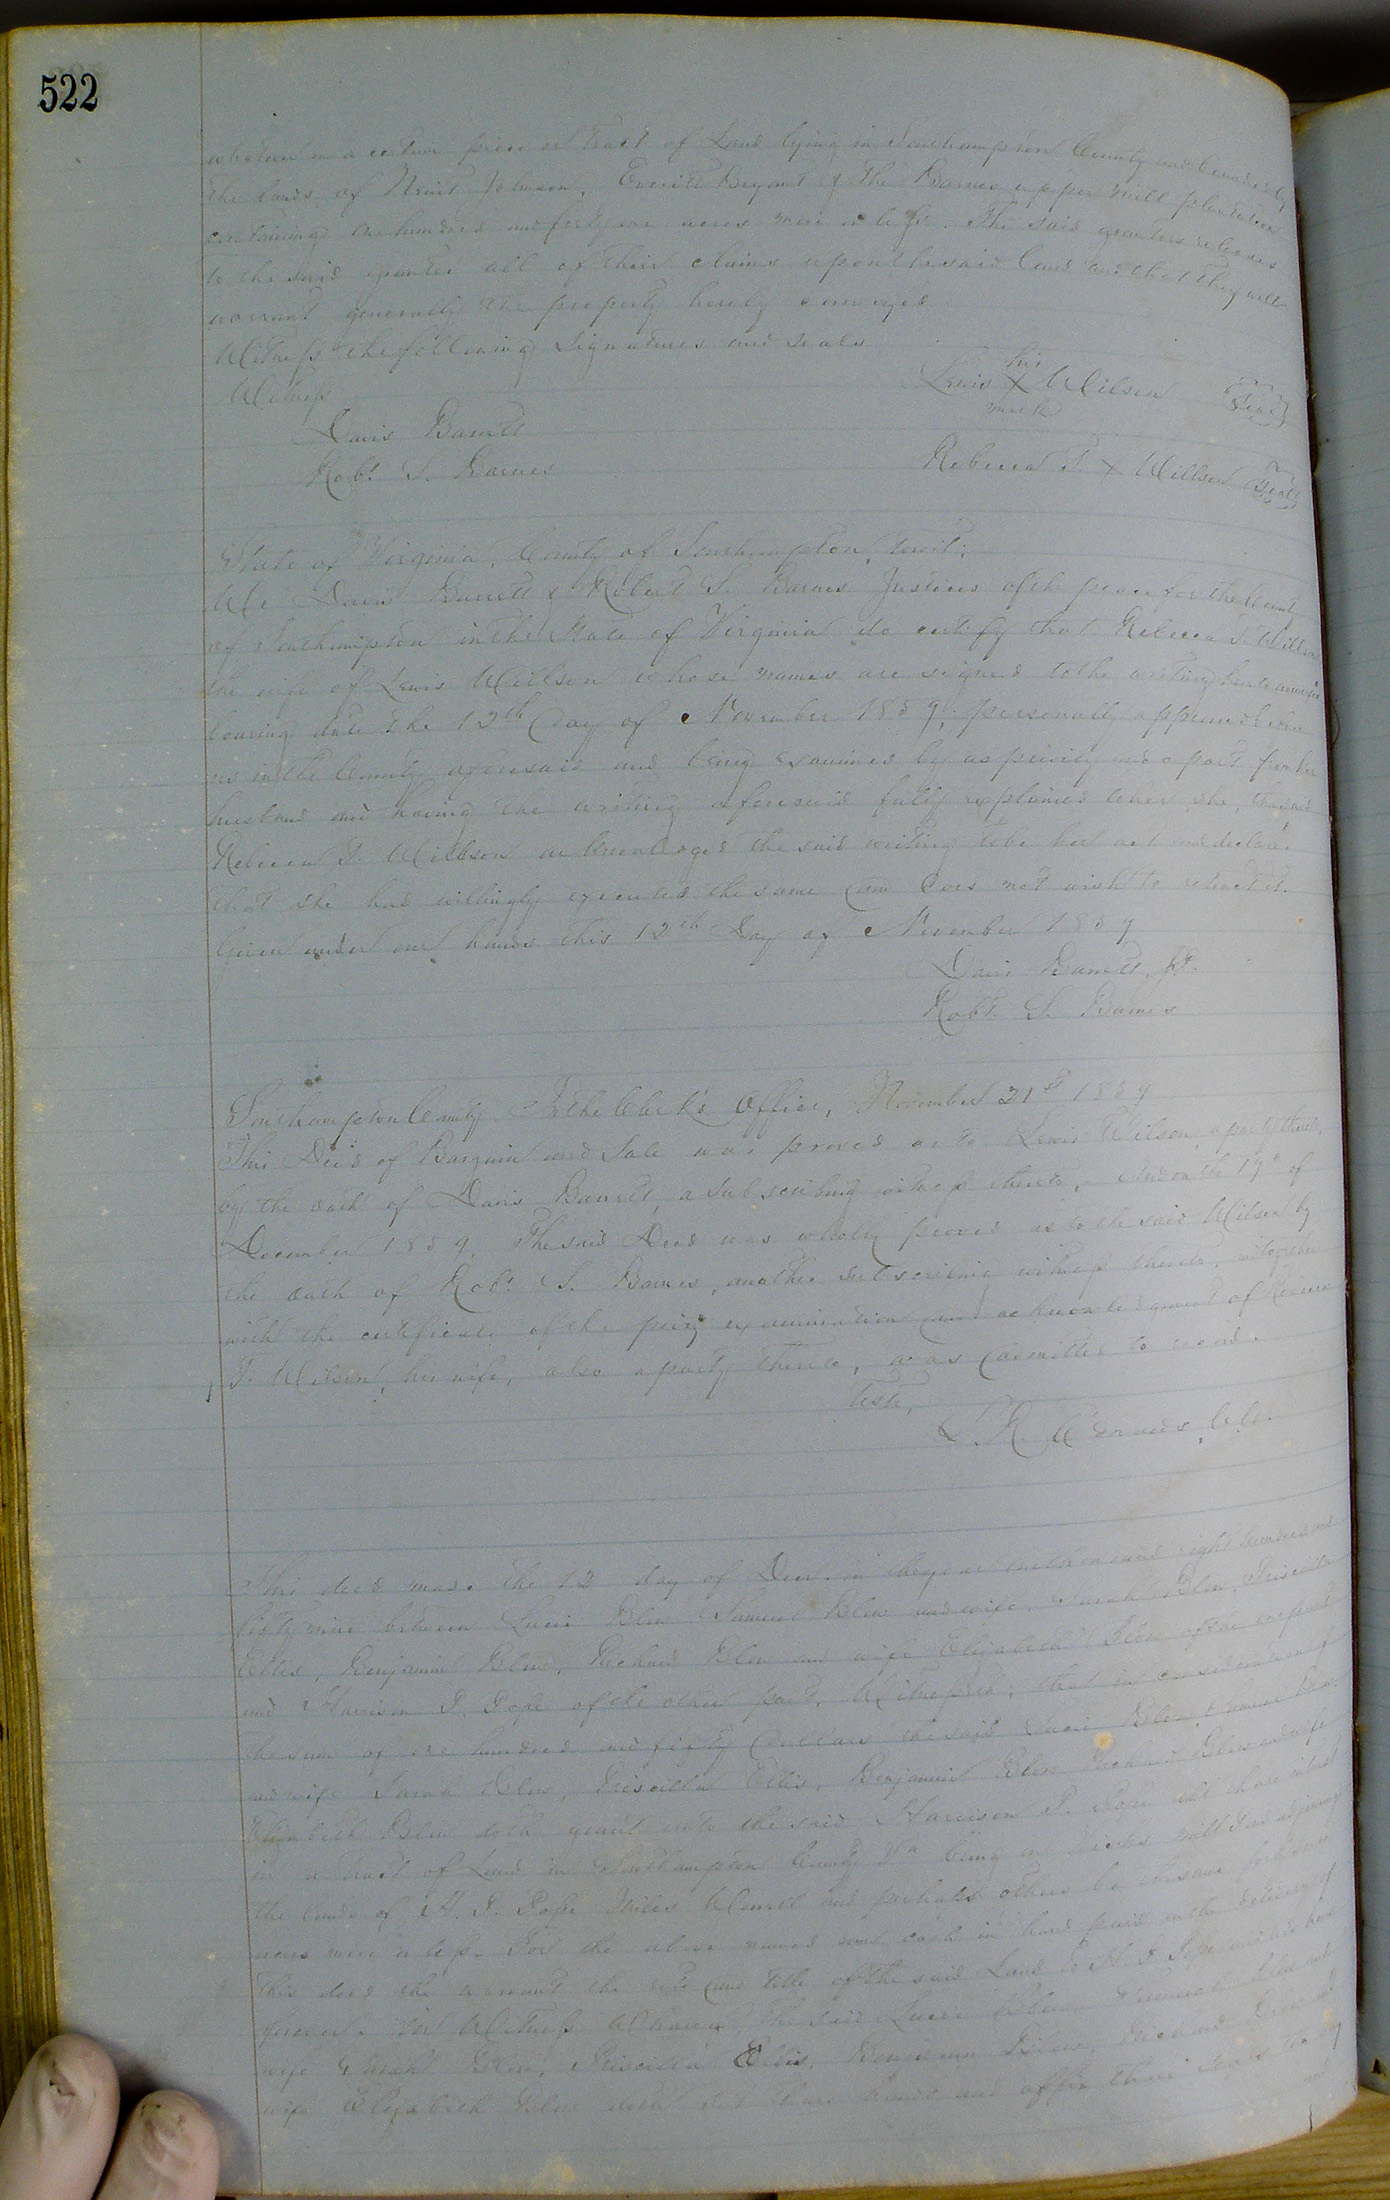 522
in a certain piece or tract of Land lying in Southampton County and bounded by
the lands of Johnson, Everitt Bryant & The Barnes upper mill plantation
containing one hundred and forty one acres more or less. The said grantors releases
to the said grantee all of their claims upon the said land and that they will
warrant generally the property hereby conveyed
Witness the following signatures and seals
Witness
his
Lewis X Wilson (Seal)
mark
Davis Barrett
Robt. S. Barnes
Rebecca T. X Willson (Seal)
State of Virginia, County of Southampton, towit;
We Davis Barrett & Robert S. Barnes Justices of the peace for the County
of Southampton in the State of Virginia do certify that Rebecca T. Willson
the wife of Lewis Willson whose names are signed to the writing hereto annexed
bearing date the 12th day of November 1859, personally appeared before
us in the County aforesaid and being examined by us privily and apart from her
husband and having the writing aforesaid fully explained to her she, the said
Rebecca T. Willson acknowledged the said writing to be her act and declared
that she had willingly executed the same and does not wish to retract it.
Given under our hands this 12th Day of November 1859
Davis Barrett, J.P.
Robt. S. Barnes
Southampton County In the Clerk's Office, November 21st 1859
This Deed of Bargain and Sale was proved as to Lewis Wilson a party thereto,
by the oath of Davis Barrett, a subscribing witness thereto, And on the 19th of
December 1859, The said Deed was wholly proved as to the said Wilson by
the oath of Robt. S. Barnes, another subscribing witness thereto, and together
with the certificate of the privy examination and acknowledgment of Rebecca
T. Wilson, his wife, also a party thereto, was admitted to record.
Teste,
L. R. Edwards, C.C.
This deed made the 12 day of Decr. in the year one thousand eight hundred and
fifty nine between Blow Samuel Blow and wife Sarah Blow, Priscilla
Ellis, Benjamin Blow, Richard Blow and wife Elizabeth Blow of the one part
and Harrison P. Pope of the other part, Witnesseth; that in consideration of
the sum of one hundred and fifty Dollars the said Blow, Samuel Blow
and wife Sarah Blow, Priscilla Ellis, Benjamin Blow Richard Blow and wife
Elizabeth Blow doth grant unto the said Harrison P. Pope all their interest
in a tract of Land in Southampton County Va being mill adjoining
the lands of H. P. Pope Miles and perhaps others be the same
acres more or less. For the above named sum cash in hand paid on the delivery of
this deed the warrant the right and title of the said Land to H. P. Pope and his heirs
forever. In Witness Whereof the said Blow, Samuel Blow and
wife Sarah Blow, Priscilla Ellis, Benjamin Blow, Richard Blow and
wife Elizabeth Blow doth set their hands and affix their seals the day
and